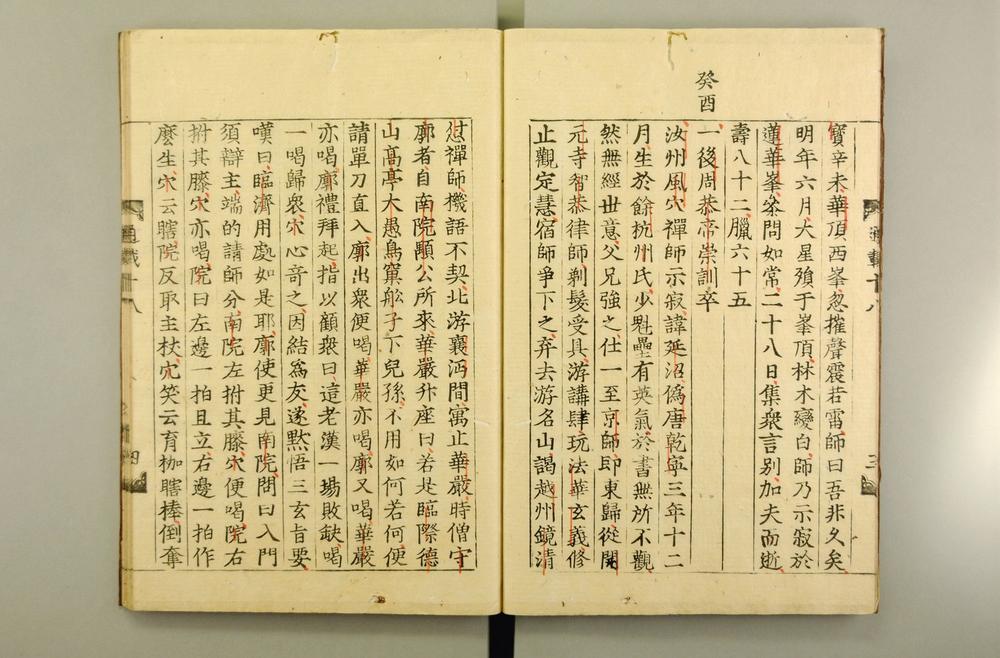 寶辛未華頂西峯忽摧聲震若雷師曰吾非久矣
明年六月大星殞于峯頂林木變白師乃示寂於
蓮華峯叅問如常二十八日集衆言別加夫而逝
壽八十二臘六十五
癸酉
一後周恭帝崇訓卒
汝州風穴禪師示寂諱延沼僞唐乾寧三年十二
月生於餘杭州氏少魁壘有英氣於書無所不觀
然無經世意父兄強之仕一至京師即東歸從開
元寺智恭律師剃髮受具游講肆玩法華玄義修
止觀定慧宿師爭下之弃去游名山謁越州鏡清
愆禪師機語不契北游襄沔間寓止華嚴時僧守
廓者自南院顒公所來華嚴升座曰若是臨際德
山高亭大愚鳥窠舩子下兒孫不用如何若何便
請單刀直入廓出衆便喝華嚴亦喝廓又喝華嚴
亦喝廓禮拜起指以顧衆曰這老漢一場敗缺喝
一喝歸衆穴心奇之因結爲友遂默悟三玄旨要
嘆曰臨濟用處如是耶廓使更見南院問曰入門
須辯主端的請師分南院左拊其膝穴便喝院右
拊其膝穴亦喝院曰左邊一拍且立右邊一拍作
麽生穴云瞎院反取主杖穴笑云盲枷瞎棒倒奪
通載十八
三
通載十八
四